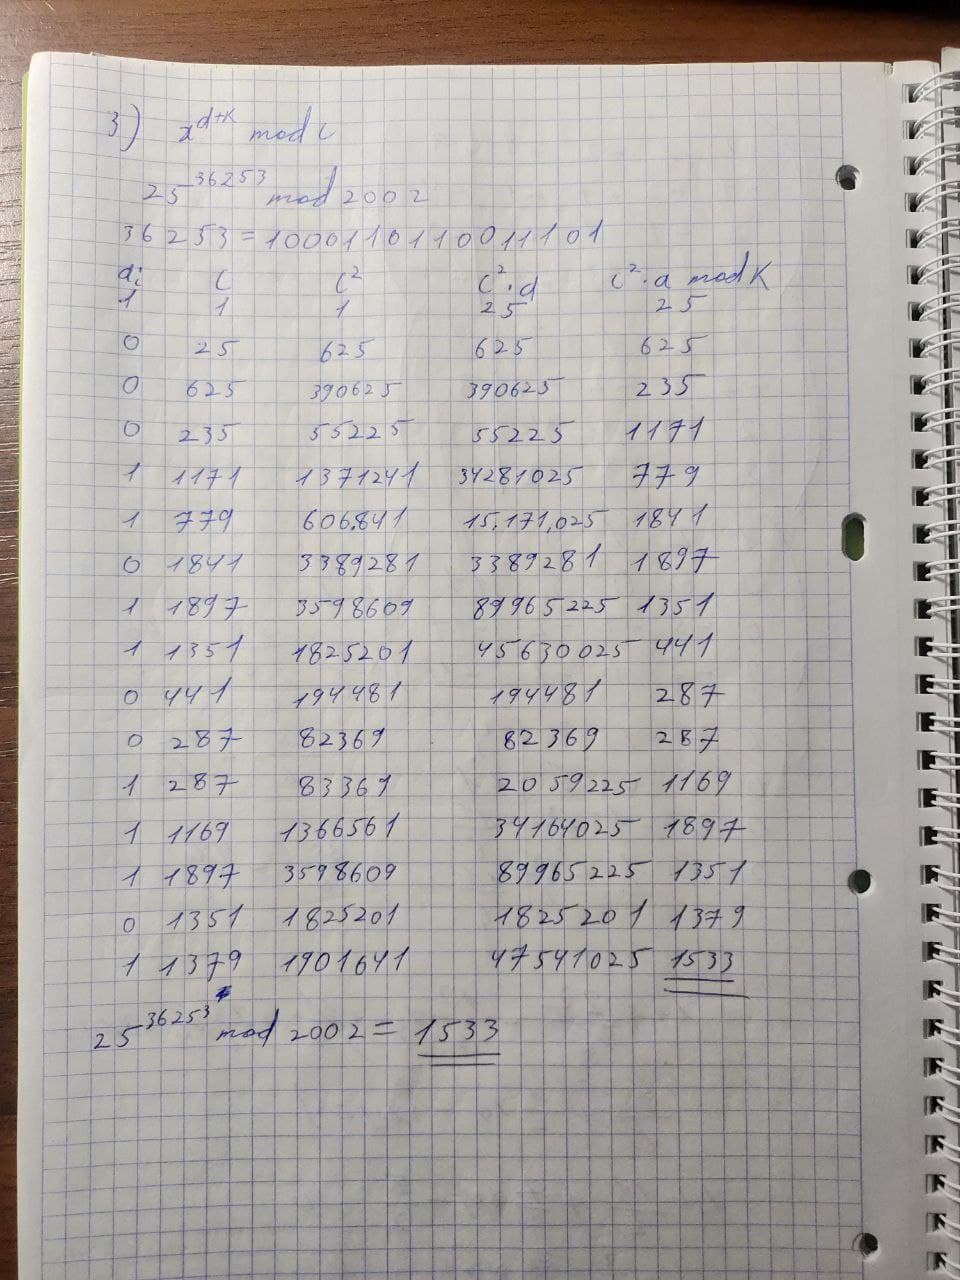 3) x^d+k mod c
25^36253 mod 2002
36253 = 1000110110011101
di C C² C²·d C²·a mod K
1 1 1 25 25
0 25 625 625 625
0 625 390625 390625 235
0 235 55225 55225 1171
1 1171 1371241 34281025 779
1 779 606.841 15,171,025 1841
0 1841 3389281 3389281 1897
1 1897 3598609 89965225 1351
1 1351 1825201 45630025 441
0 441 194481 194481 287
0 287 82369 82369 287
1 287 83369 2059225 1169
1 1169 1366561 34164025 1897
1 1897 3598609 89965225 1351
0 1351 1825201 1825201 1379
1 1379 1901641 47541025 1533
25^36253 mod 2002 = 1533